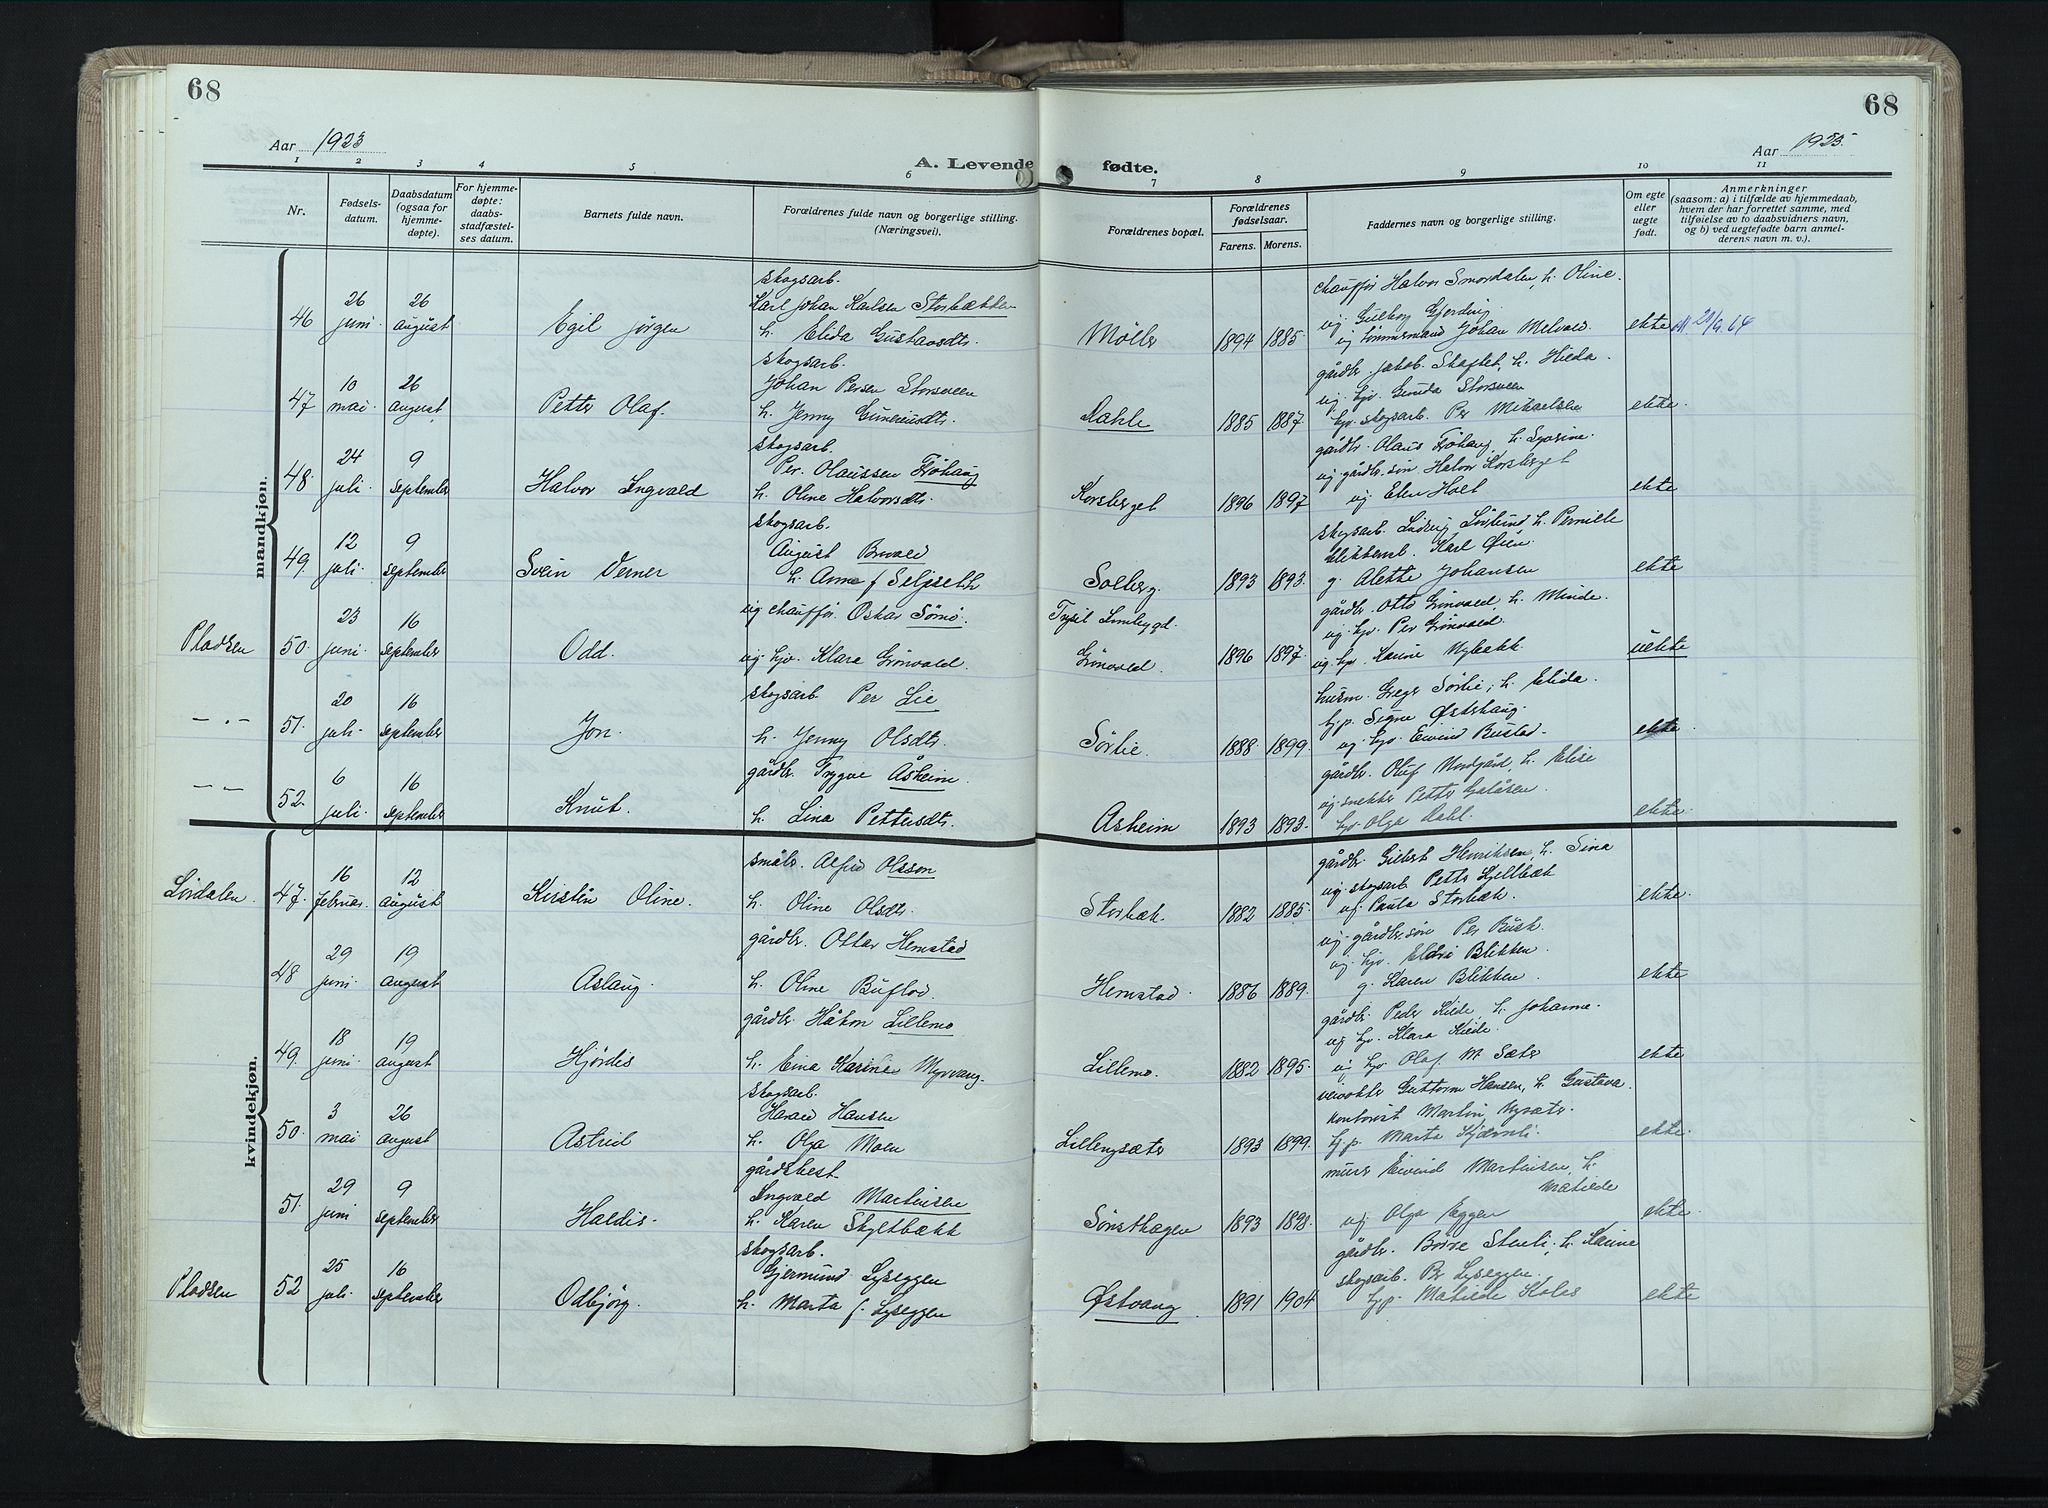 68
68
Aar 1923
A. Levende fødte.
Aar 1923.
1 2 3 4 5 6 7 8 9 10 11
Nr.
Fødsels-
datum.
Daabsdatum
(ogsaa for
hjemme-
døpte).
For hjemme-
døpte:
daabs-
stadfæstel-
ses datum.
Barnets fulde navn.
Forældrenes fulde navn og borgerlige stilling.
(Næringsvei).
Forældrenes bopæl.
Forældrenes
fødselsaar.
Farens. Morens.
Faddernes navn og borgerlige stilling.
Om egte
eller
uegte
født.
Anmerkninger
(saasom: a) i tilfælde av hjemmedaab,
hvem der har forrettet samme, med
tilføielse av to daabsvidners navn,
og b) ved uegtefødte barn anmel-
derens navn m. v.).
mandkjøn.
46 26 juni. 26 august Egil Jørgen
skogsarb.
Karl Johan Karlsen Storbækken
h. Elida Gustavsdtr.
Møller 1894 1885.
chauffør Halvor Smordalen, h. Oline.
ug Gulborg Gjerding
ug tømmermand Johan Melvold.
ekte
47 10 mai. 26 august Petter Olaf.
skogsarb.
Johan Persen Storsveen
h. Jenny Gunerusdtr.
Dahle 1885 1887.
gårdbr. Jakob Skaftet, h. Hilda.
ug. tjp. Gunda Storsveen
tjp. skogsarb. Per Mikaelsen
ekte
48. 24 juli. 9 september Halvor Ingvald
skogsarb.
Per Olaussen Frøhaug
h. Oline Halvorsdtr.
Korsberget 1896 1897
gårdbr. Olaus Frøhaug, h. Lovine.
ug. gårdbr. søn Halvor Korsberget
ug Elen Holt
ekte
49. 12 juli. 9 september Svein Verner
skogsarb.
August Buvold
h. Anne f Seljseth
Solberg. 1893 1893.
skogsarb. Ludvig Lørlund, h. Pernille
Karl Øien.
g. Alette Johansen
ekte
Pladsen 50. 23 juni. 16 september Odd.
ug. chauffør. Oskar Sømo.
ug. tjp. Klara Grønvold.
Trysil Innbygd.
Grønvold. 1896 1897.
gårdbr. Otto Grønvold, h. Minde.
ug. tjp. Per Grønvold.
ug. tjp. Karine Nybakk.
uekte
— „ — 51. 20 juli. 16 september Jon.
skogsarb. Per Lie
h. Jenny Olsdtr.
Sørlie. 1888 1899.
husm. Greger Sørlie; h. Elida.
tjp. Signe Østerhaug.
ug. tjp. Eivind Rustad.
ekte
— „ — 52. 6 juli. 16 september Knut.
gårdbr. Trygve Åsheim.
h. Lina Pettersdtr.
Asheim 1893 1893.
gårdbr. Oluf Nordgård, h. Elise
ug. snekker Petter Galåsen.
tjp. Olga Dahl.
ekte.
kvindekjøn.
Lørdalen. 47. 16 februar. 12 august Kirstin Oline.
småbr. Alfred Olsson
h. Oline Olsdtr.
Storbæk. 1882 1885.
gårdbr. Gilbert Henriksen, h. Sina
ug. skogsarb Petter Kjelbæk
ug. Paula Storbæk.
ekte.
48 29 juni. 19 august Aslaug.
gårdbr. Ottar Hemstad
h. Oline Buflod.
Hemstad. 1886 1889.
ug. gårdbr. søn Per Busk.
ug. tjp. Blikken.
g. Karen Blikken.
ekte
49. 18 juni. 19 august Hjørdis
gårdbr. Håkon Lillemo
h. Eina Karine Myrvang.
Lillemo. 1882 1895.
gårdbr Peder Kilde, h. Johanne.
ug tjp. Klara Kilde.
ug tjp. Olaf M. Sæter
ekte
50. 3 mai 26 august Astrid
skogsarb.
Harald Hansen
h. Olga Moen
Lillengsæter 1893 1899.
veivokter Guttorm Hansen, h. Gustava.
kontorist Martin Nysæter.
tjp. Marta Kjærnli.
ekte.
51. 29 juni 9 september Haldis.
gårdsbest.
Ingvald Martinsen
h. Karen Skyltbækk
Sønsthagen 1893 1898.
murer Eivind Martinsen, h.
Matilde
ug Olga Eggen
ekte.
Pladsen 52 25 juli. 16 september Odbjørg.
skogsarb.
Gjermund Lyseggen
h. Marta f. Lyseggen
Østvang. 1891 1904
gårdbr. Borre Stenli, h. Karine
skogsarb. Pr Lyseggen.
tjp. Matilde Kolos
ekte